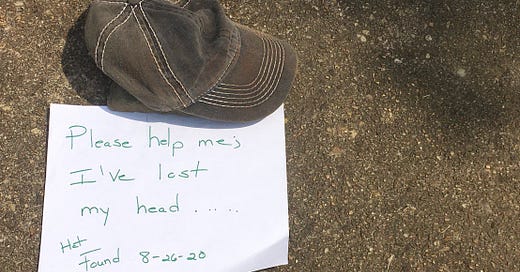 Please help me;
I've lost
my head .....
Hat
Found 8-26-20